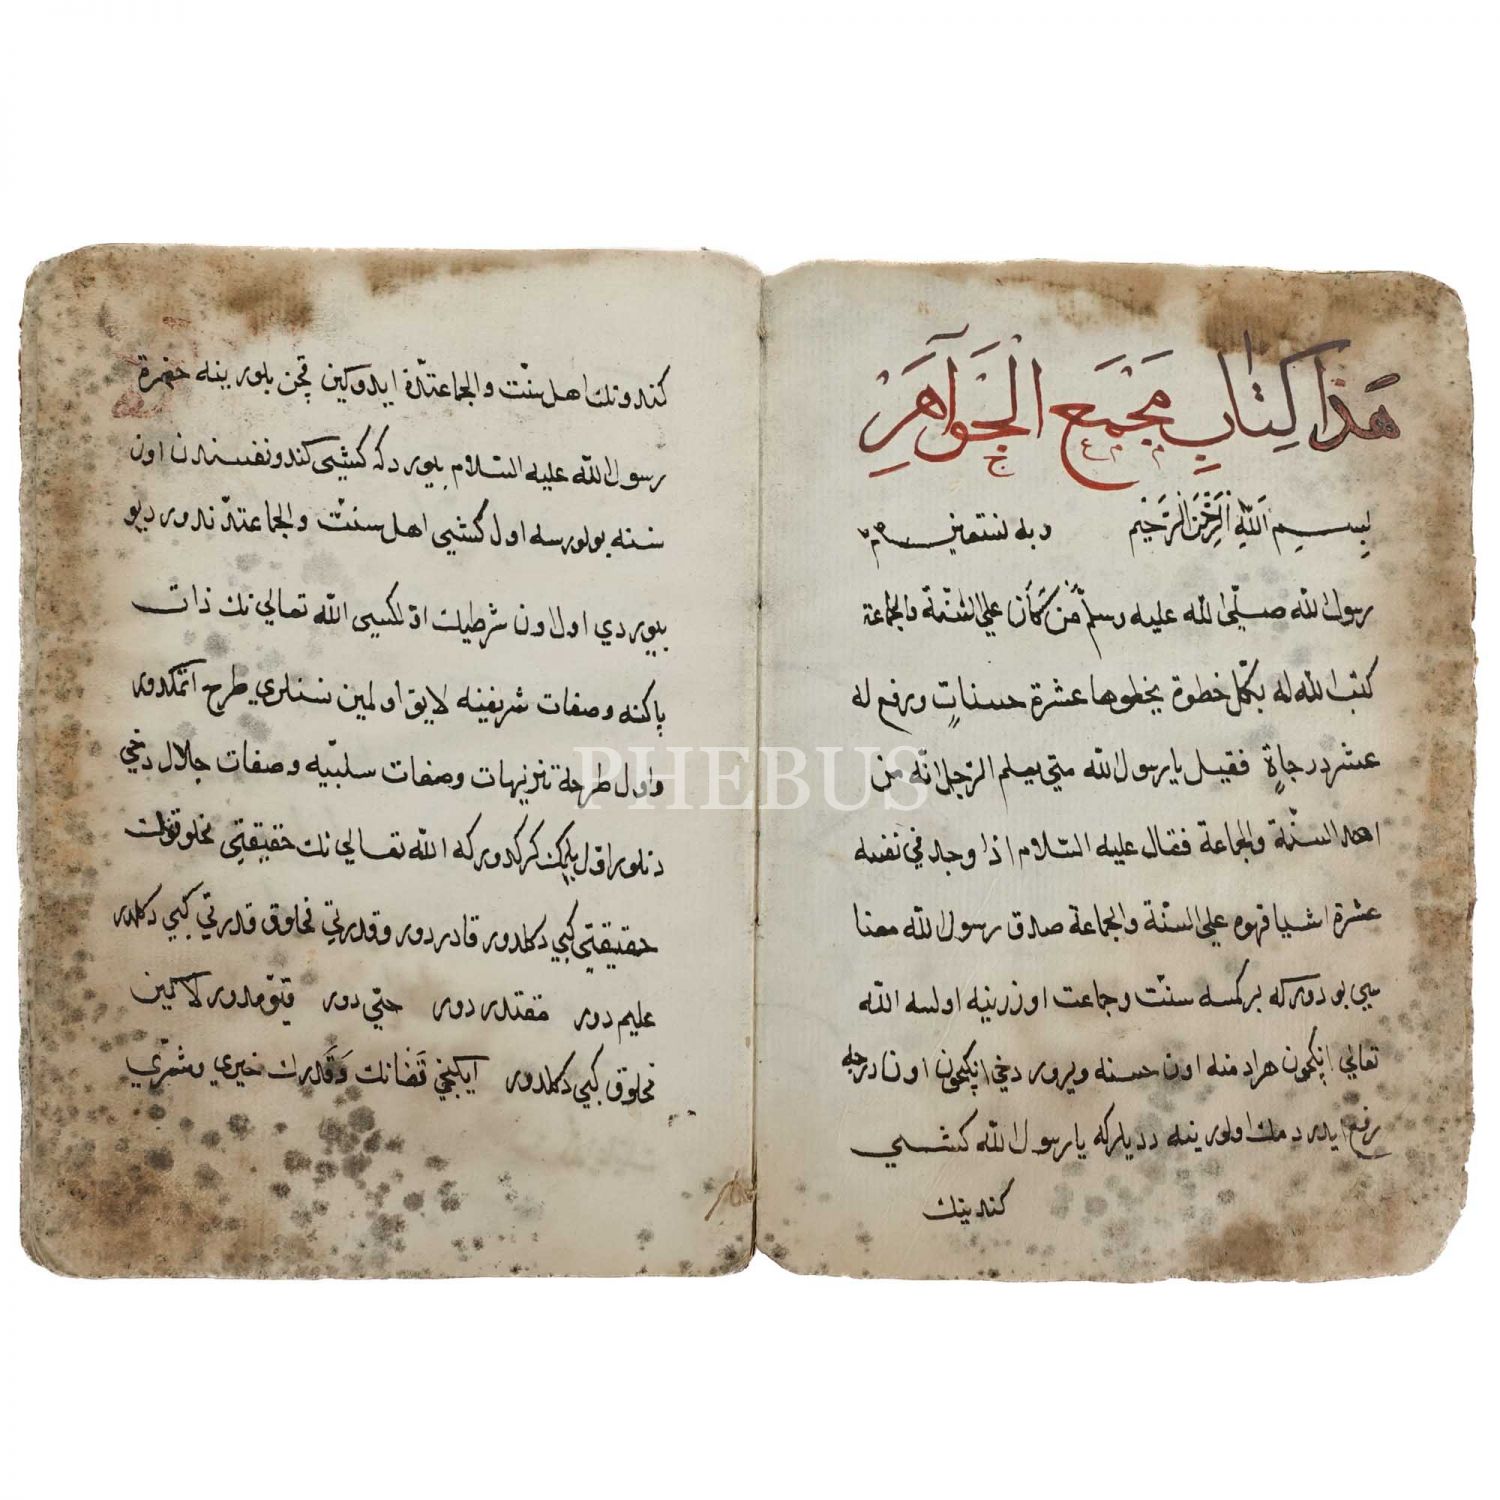 هَذَا كِتَابِ مَجْمَعِ الْجَوَاهَرِ
بِسْمِ اللهِ الرَّحْمَنِ الرَّحِيمِ وبه نستعين
رسول الله صلّى الله عليه وسلّم مَن كَانَ على السّنّة والجماعة
كتب الله له بكلّ خطوة يخطوها عشرة حسناتٍ ورفع له
عشر درجاةٍ فقيل يا رسول الله متي يعلم الرّجل انّه من
اهل السنّة والجماعة فقال عليه السّلام اذا وجد في نفسه
عشرة اشيا فهوه على السنّة والجماعة صدق رسول الله معنا
سي بو دوركه بركسه سنّت وجماعت اوزرينه اولسه الله
تعالي انكچون هراد منه اون حسنه ويرور دخي انكچون اون درجه
رفع ايدر دمك اولور ينه دديلركه يا رسول الله كشي
كندينك
كندونك اهل سنّت والجماعتدة ايدوكين قچن بلور ينه حضرة
رسول الله عليه السّلام بيوردكه كشي كندو نفسندن اون
سنه بولورسه اول كشي اهل سنّت والجماعتدندور ديو
بيوردي اول اون شرطيك اوّلكسي الله تعالي نك ذات
پاكنه وصفات شريفينه لايق اولمين نسنلري طرح اتمكدور
واول طرحة تنزيهات وصفات سلبيّه وصفات جلال دخي
دنلور اوّل بلمك كركدوركه الله تعالي نك حقيقتي مخلوقونك
حقيقتي كبي دكلدور قادردور وقدرتي مخلوق قدرتي كبي دكلدر
عليم دور مقتدر دور حيّ دور قيّومدور لاكين
مخلوق كبي دكلدور ايكنجي قَضانك وَقَدرك خيري وشرّي
PHEBUS